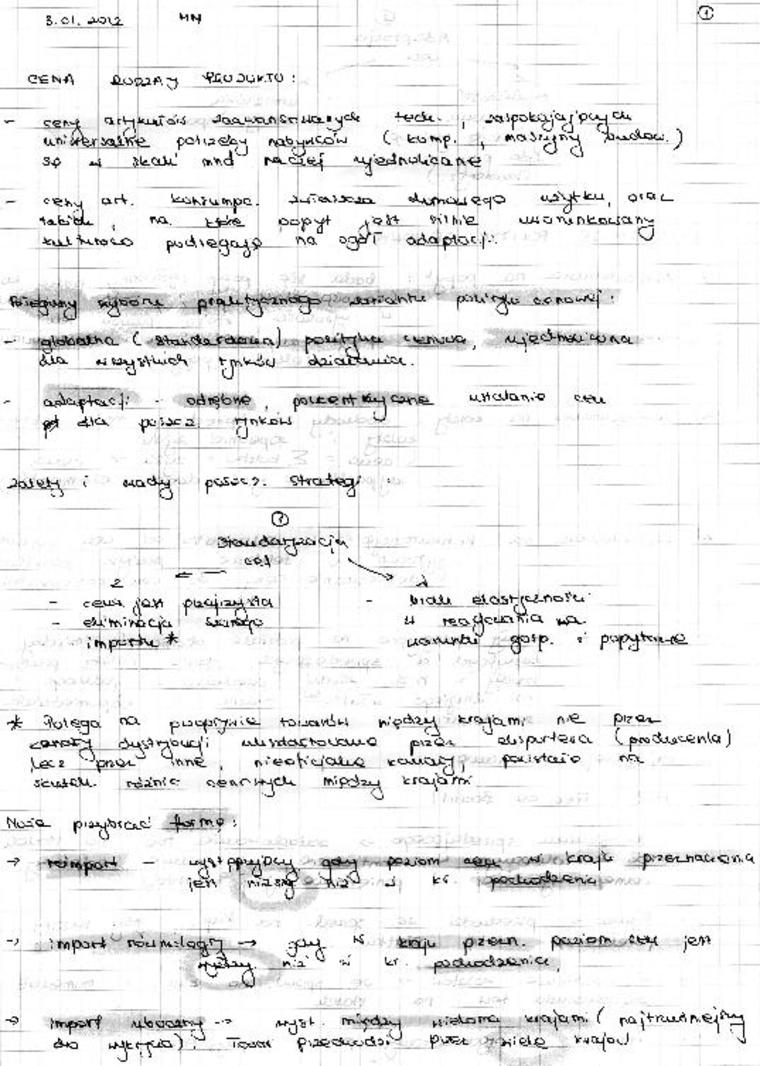 3.01.2012 MN ①
CENA RODZAJ PRODUKTU:
- ceny artykułów zaawansowanych tech., zaspokajających
uniwersalne potrzeby nabywców (komp., maszyny budow.)
są w skali mnd raczej ujednolicane
- ceny art. konsumpc. zwłaszcza domowego użytku, oraz
takich, na które popyt jest silnie uwarunkowany
kulturowo podlegają na ogół adaptacji.
wyboru praktycznego wariantu polityki cenowej:
- globalna (standardowa) polityka cenowa, ujednolicona
dla wszystkich rynków działania.
- adaptacji - odrębne, policentryczne ustalanie cen
dla poszcz rynków
Zalety i wady poszcz. strategii:
①
Standaryzacja
cen
- cena jest przejrzysta
- eliminacja szarego
importu *
- brak elastyczności
w reagowaniu na
warunki gosp. i popytowe
* Polega na przepływie towarów między krajami nie przez
kanały dystrybucji ukształtowane przez eksportera (producenta)
lecz przez inne, nieoficjalne kanały, powstałe na
skutek różnic cenowych między krajami
Może przybrać formę:
→ reimport - występujący gdy poziom cen w kraju przeznaczenia
jest niższy niż w kr. pochodzenia
→ import równoległy → gdy w kraju przezn. poziom cen jest
wyższy niż w kr. pochodzenia,
→ import uboczny → wyst. między wieloma krajami (najtrudniejszy
do wykrycia). Towar przechodzi przez wiele krajów